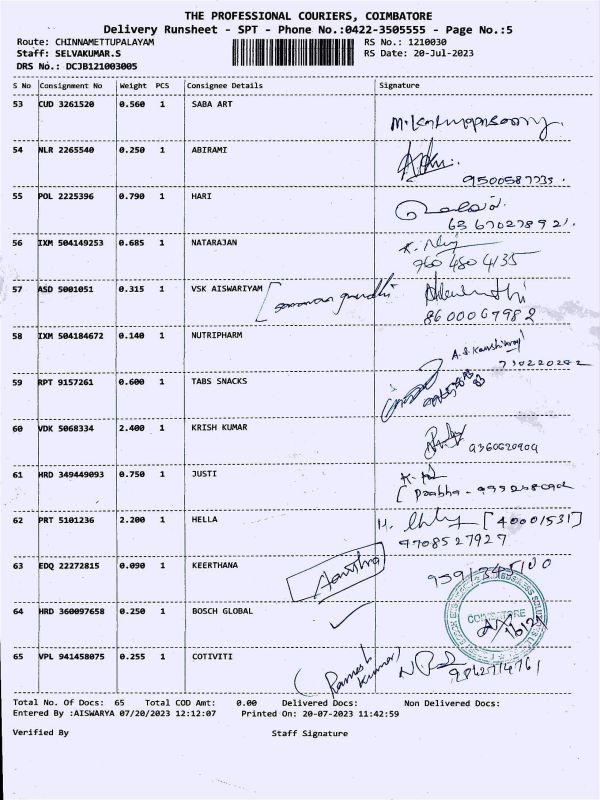 THE PROFESSIONAL COURIERS, COIMBATORE
Delivery Runsheet - SPT - Phone No.:0422-3505555 - Page No.:5
Route: CHINNAMETTUPALAYAM RS No.: 1210030
Staff: SELVAKUMAR.S RS Date: 20-Jul-2023
DRS No.: DCJB121003005
S No Consignment No Weight PCS Consignee Details Signature
53 CUD 3261520 0.560 1 SABA ART
54 NLR 2265540 0.250 1 ABIRAMI
55 POL 2225396 0.790 1 HARI
6367027892
56 IXM 504149253 0.685 1 NATARAJAN
760 480 4135
57 ASD 5001051 0.315 1 VSK AISWARIYAM
8600067982
58 IXM 504184672 0.140 1 NUTRIPHARM
A.S.Kaushikraj
59 RPT 9157261 0.600 1 TABS SNACKS
60 VDK 5068334 2.400 1 KRISH KUMAR
9360620909
61 HRD 349449093 0.750 1 JUSTI
Prabha -
62 PRT 5101236 2.200 1 HELLA
[40001531]
9708527927
63 EDQ 22272815 0.090 1 KEERTHANA
9591345100
64 HRD 360097658 0.250 1 BOSCH GLOBAL
COIMBATORE
65 VPL 941458075 0.255 1 COTIVITI
(Ramesh kumar)
9842714761
Total No. Of Docs: 65 Total COD Amt: 0.00 Delivered Docs: Non Delivered Docs:
Entered By :AISWARYA 07/20/2023 12:12:07 Printed On: 20-07-2023 11:42:59
Verified By Staff Signature